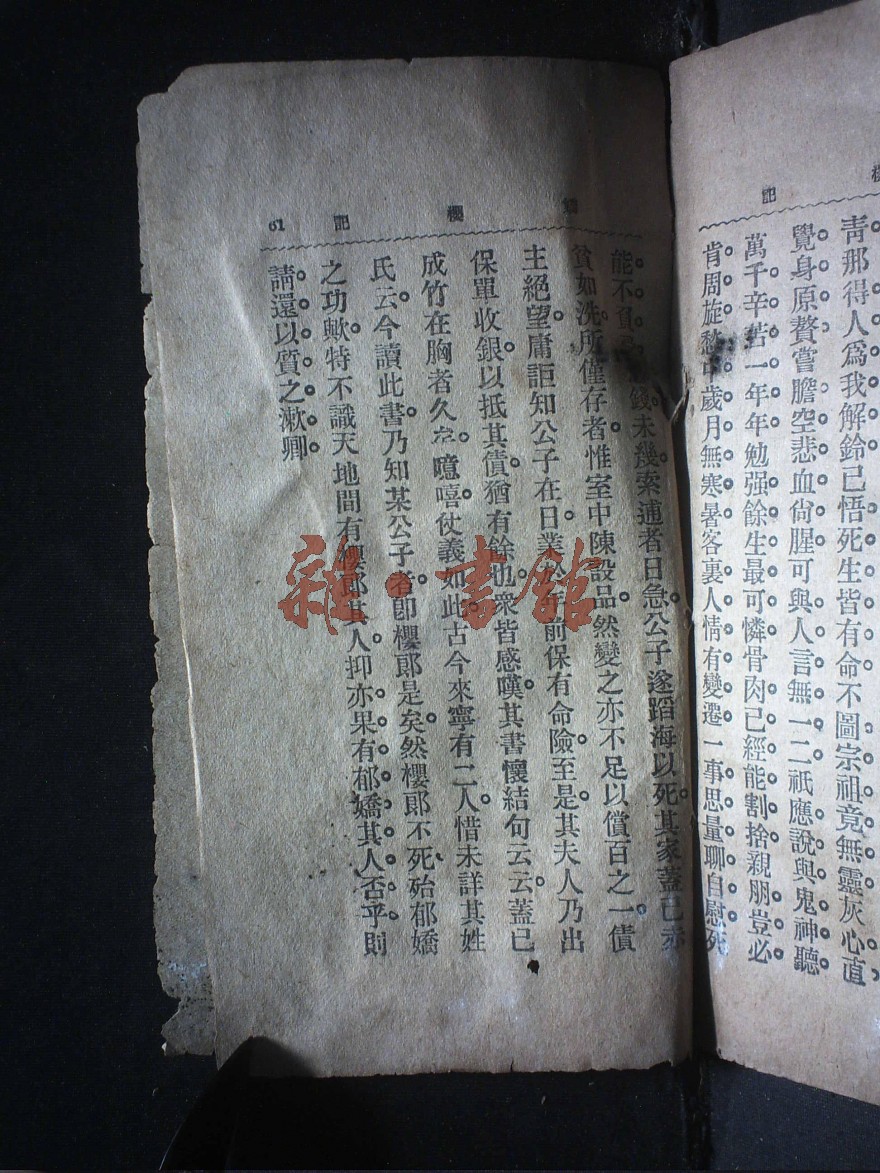 記
青那得人爲我解鈴已悟死生皆有命不圖宗祖竟無靈灰心直
覺身原贅嘗膽空悲血尙腥可與人言無一二祇應說與鬼神聽
萬千辛苦一年年勉强餘生最可憐骨肉已經能割捨親朋豈必
肯周旋愁中歲月無寒暑客裏人情有變遷一事思量聊自慰死
櫻
記
61
能不貧 錢未幾索逋者日急公子遂蹈海以死其家蓋已赤
貧如洗所僅存者惟室中陳設品然變之亦不足以償百之一債
主絕望庸詎知公子在日業 前保有命險至是其夫人乃出
保單收銀以抵其債猶有餘也衆皆感嘆其書懷結句云云蓋已
成竹在胸者久 噫嘻仗義如此古今來寧有二人惜未詳其姓
氏云今讀此書乃知某公子者卽櫻郞是矣然櫻郞不死殆郁嬌
之功歟特不識天地間有櫻郞其人抑亦果有郁嬌其人否乎則
請還以質之漱卿
雜·書館